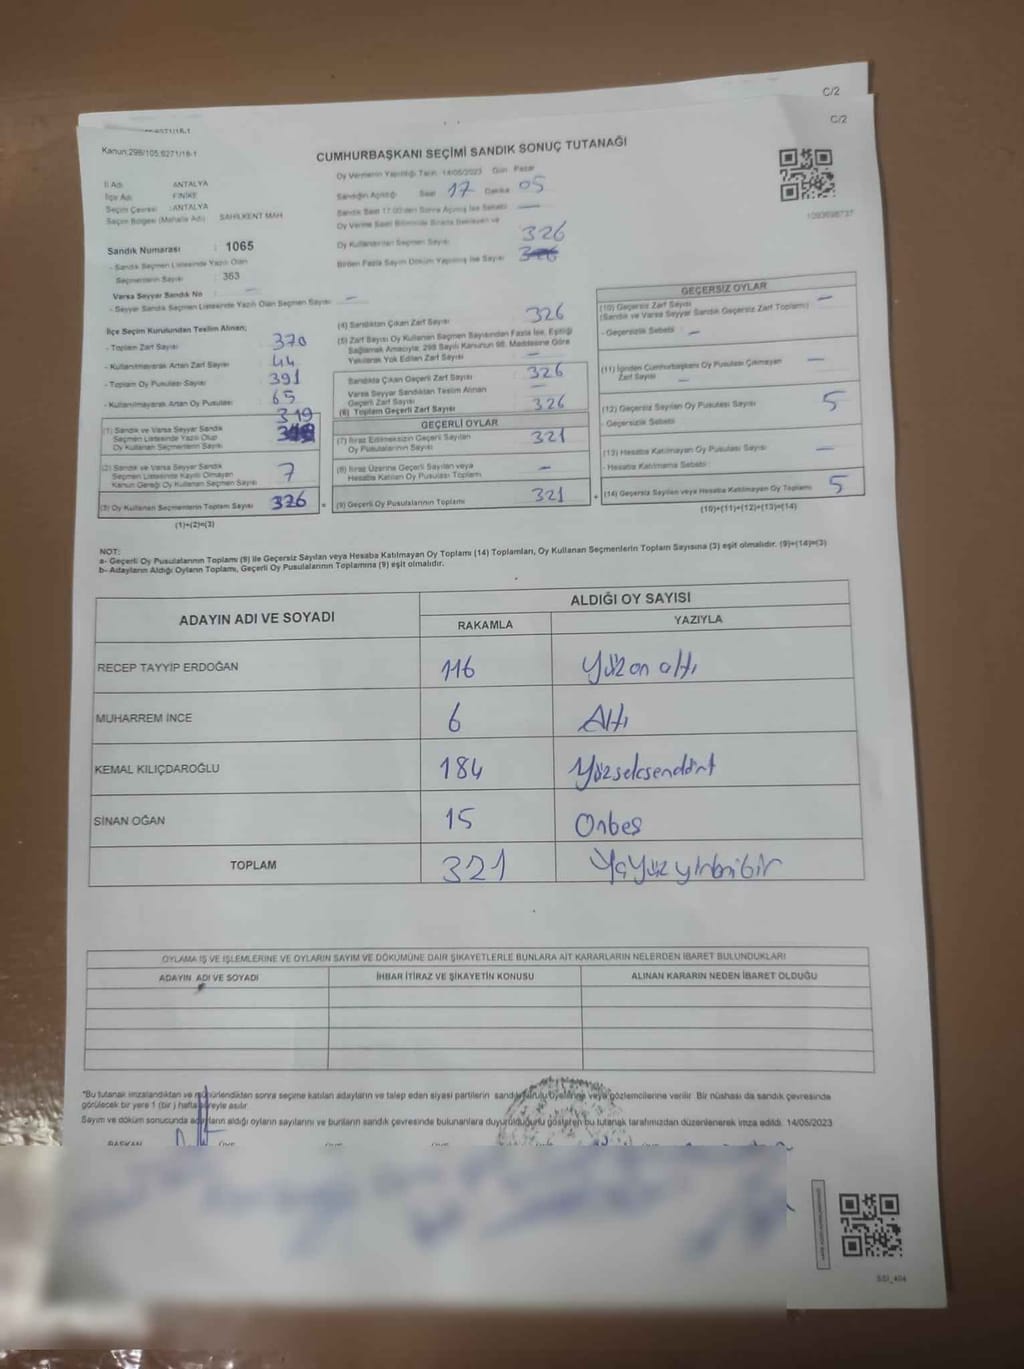 C/2
C/2
Kanun:298/105:6271/18-1
CUMHURBAŞKANI SEÇİMİ SANDIK SONUÇ TUTANAĞI
İl Adı ANTALYA
İlçe Adı FİNİKE
Seçim Çevresi :ANTALYA
Seçim Bölgesi (Mahalle Adı) SAHİLKENT MAH
Sandık Numarası : 1065
- Sandık Seçmen Listesinde Yazılı Olan
Seçmenlerin Sayısı : 363
Varsa Seyyar Sandık No : —
- Seyyar Seçmen Listesinde Yazılı Olan Seçmen Sayısı : —
Oy Vermenin Yapıldığı Tarih 14/05/2023 Gün Pazar
Sandığın Açıldığı Saat 17 Dakika 05
Sandık Saat 17:00'den Sonra Açılmış İse Sebebi —
Oy Verme Saati Bitiminde Sırada Bekleyen ve
Oy Kullandırılan Seçmen Sayısı 326
Birden Fazla Sayım Döküm Yapılmış İse Sayısı
1093698737
İlçe Seçim Kurulundan Teslim Alınan;
- Toplam Zarf Sayısı 370
- Kullanılmayarak Artan Zarf Sayısı 44
- Toplam Oy Pusulası Sayısı 391
- Kullanılmayarak Artan Oy Pusulası 65
319
(1) Sandık ve Varsa Seyyar Sandık
Seçmen Listesinde Yazılı Olup
Oy Kullanan Seçmenlerin Sayısı
(2) Sandık ve Varsa Seyyar Sandık
Seçmen Listesinde Kayıtlı Olmayan
Kanun Gereği Oy Kullanan Seçmen Sayısı 7
(3) Oy Kullanan Seçmenlerin Toplam Sayısı 326 =
(1)+(2)=(3)
(4) Sandıktan Çıkan Zarf Sayısı 326
(5) Zarf Sayısı Oy Kullanan Seçmen Sayısından Fazla İse, Eşitliği
Sağlamak Amacıyla; 298 Sayılı Kanunun 98. Maddesine Göre
Yakılarak Yok Edilen Zarf Sayısı —
Sandıkta Çıkan Geçerli Zarf Sayısı 326
Varsa Seyyar Sandıktan Teslim Alınan
Geçerli Zarf Sayısı —
(6) Toplam Geçerli Zarf Sayısı 326
GEÇERLİ OYLAR
(7) İtiraz Edilmeksizin Geçerli Sayılan
Oy Pusulalarının Sayısı 321
(8) İtiraz Üzerine Geçerli Sayılan veya
Hesaba Katılan Oy Pusulası Toplamı —
(9) Geçerli Oy Pusulalarının Toplamı 321 +
GEÇERSİZ OYLAR
(10) Geçersiz Zarf Sayısı
(Sandık ve Varsa Seyyar Sandık Geçersiz Zarf Toplamı) —
- Geçersizlik Sebebi : —
(11) İçinden Cumhurbaşkanı Oy Pusulası Çıkmayan
Zarf Sayısı —
(12) Geçersiz Sayılan Oy Pusulası Sayısı 5
- Geçersizlik Sebebi :
(13) Hesaba Katılmayan Oy Pusulası Sayısı —
- Hesaba Katılmama Sebebi :
(14) Geçersiz Sayılan veya Hesaba Katılmayan Oy Toplamı 5
(10)+(11)+(12)+(13)=(14)
NOT:
a- Geçerli Oy Pusulalarının Toplamı (9) ile Geçersiz Sayılan veya Hesaba Katılmayan Oy Toplamı (14) Toplamları, Oy Kullanan Seçmenlerin Toplam Sayısına (3) eşit olmalıdır. (9)+(14)=(3)
b- Adayların Aldığı Oyların Toplamı, Geçerli Oy Pusulalarının Toplamına (9) eşit olmalıdır.
ADAYIN ADI VE SOYADI ALDIĞI OY SAYISI
RAKAMLA YAZIYLA
RECEP TAYYİP ERDOĞAN 116 Yüzon altı
MUHARREM İNCE 6 Altı
KEMAL KILIÇDAROĞLU 184 Yüzseksendört
SİNAN OĞAN 15 Onbeş
TOPLAM 321 Üçyüzyirmibir
OYLAMA İŞ VE İŞLEMLERİNE VE OYLARIN SAYIM VE DÖKÜMÜNE DAİR ŞİKAYETLERLE BUNLARA AİT KARARLARIN NELERDEN İBARET BULUNDUKLARI
ADAYIN ADI VE SOYADI İHBAR İTİRAZ VE ŞİKAYETİN KONUSU ALINAN KARARIN NEDEN İBARET OLDUĞU
*Bu tutanak imzalandıktan ve mühürlendikten sonra seçime katılan adayların ve talep eden siyasi partilerin sandık kurulu üyelerine veya gözlemcilerine verilir. Bir nüshası da sandık çevresinde
görülecek bir yere 1 (bir) hafta süreyle asılır.
Sayım ve döküm sonucunda adayların aldığı oyların sayılarını ve bunların sandık çevresinde bulunanlara duyurulduğunu gösteren bu tutanak tarafımızdan düzenlenerek imza edildi. 14/05/2023
BAŞKAN ÜYE ÜYE